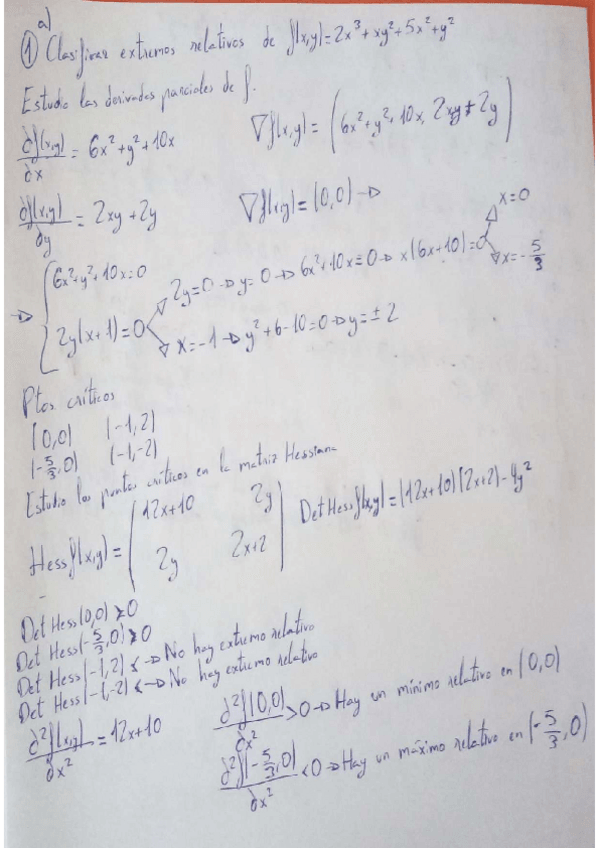 a)
① Clasificar extremos relativos de f(x,y)=2x³+xy²+5x²+y²
Estudio las derivadas parciales de f.
∂f(x,y)/∂x = 6x²+y²+10x
∇f(x,y) = (6x²+y²+10x, 2xy+2y)
∂f(x,y)/∂y = 2xy+2y
∇f(x,y)=(0,0) →
→ { 6x²+y²+10x=0
2y(x+1)=0 ↗ 2y=0 → y=0 → 6x²+10x=0 → x(6x+10)=0 ↗ x=0
↘ x=-5/3
↘ x=-1 → y²+6-10=0 → y=±2
Ptos críticos
(0,0) (-1,2)
(-5/3,0) (-1,-2)
Estudio los puntos críticos en la matriz Hessiana
Hess f(x,y) = ( 12x+10 2y
2y 2x+2 )
Det Hess f(x,y) = (12x+10)(2x+2)-4y²
Det Hess(0,0) >0
Det Hess(-5/3,0) >0
Det Hess(-1,2) < → No hay extremo relativo
Det Hess(-1,-2) < → No hay extremo relativo
∂²f(x,y)/∂x² = 12x+10
∂²f(0,0)/∂x² >0 → Hay un mínimo relativo en (0,0)
∂²f(-5/3,0)/∂x² <0 → Hay un máximo relativo en (-5/3,0)